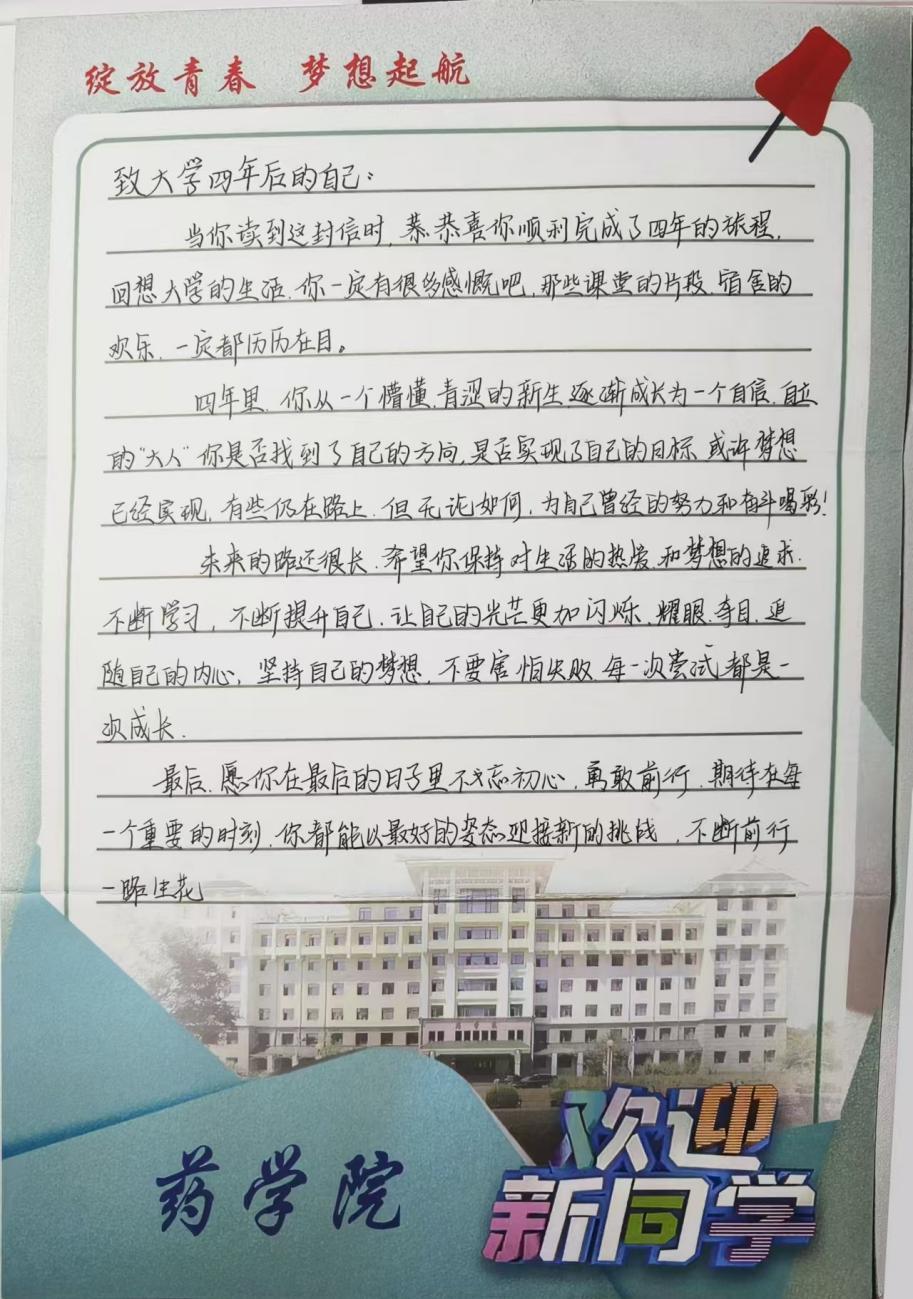 绽放青春 梦想起航
致大学四年后的自己：
当你读到这封信时，恭恭喜你顺利完成了四年的旅程，
回想大学的生活，你一定有很多感慨吧，那些课堂的片段、宿舍的
欢乐，一定都历历在目。
四年里，你从一个懵懂、青涩的新生，逐渐成长为一个自信、自立
的“大人”你是否找到了自己的方向，是否实现了自己的目标，或许梦想
已经实现，有些仍在路上，但无论如何，为自己曾经的努力和奋斗喝彩！
未来的路还很长，希望你保持对生活的热爱，和梦想的追求，
不断学习，不断提升自己，让自己的光芒更加闪烁、耀眼、夺目，追
随自己的内心，坚持自己的梦想，不要害怕失败，每一次尝试都是一
次成长。
最后，愿你在最后的日子里不忘初心，勇敢前行，期待在每
一个重要的时刻，你都能以最好的姿态迎接新的挑战，不断前行
一路生花
药学院
欢迎
新同学